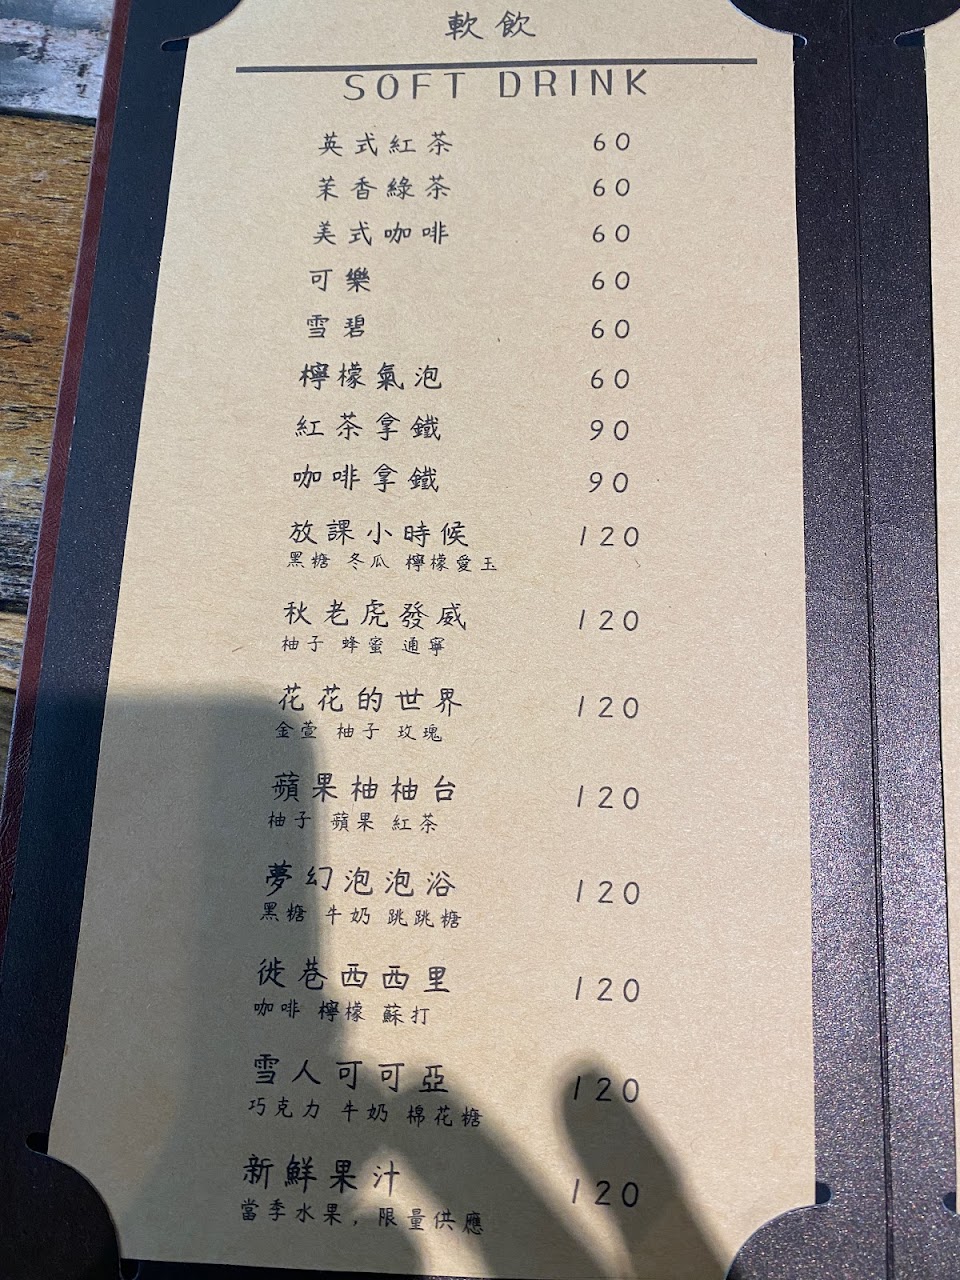 軟飲
SOFT DRINK
英式紅茶 60
茉香綠茶 60
美式咖啡 60
可樂 60
雪碧 60
檸檬氣泡 60
紅茶拿鐵 90
咖啡拿鐵 90
放課小時候 120
黑糖 冬瓜 檸檬愛玉
秋老虎發威 120
柚子 蜂蜜 通寧
花花的世界 120
金萱 柚子 玫瑰
蘋果柚柚台 120
柚子 蘋果 紅茶
夢幻泡泡浴 120
黑糖 牛奶 跳跳糖
徙巷西西里 120
咖啡 檸檬 蘇打
雪人可可亞 120
巧克力 牛奶 棉花糖
新鮮果汁 120
當季水果，限量供應